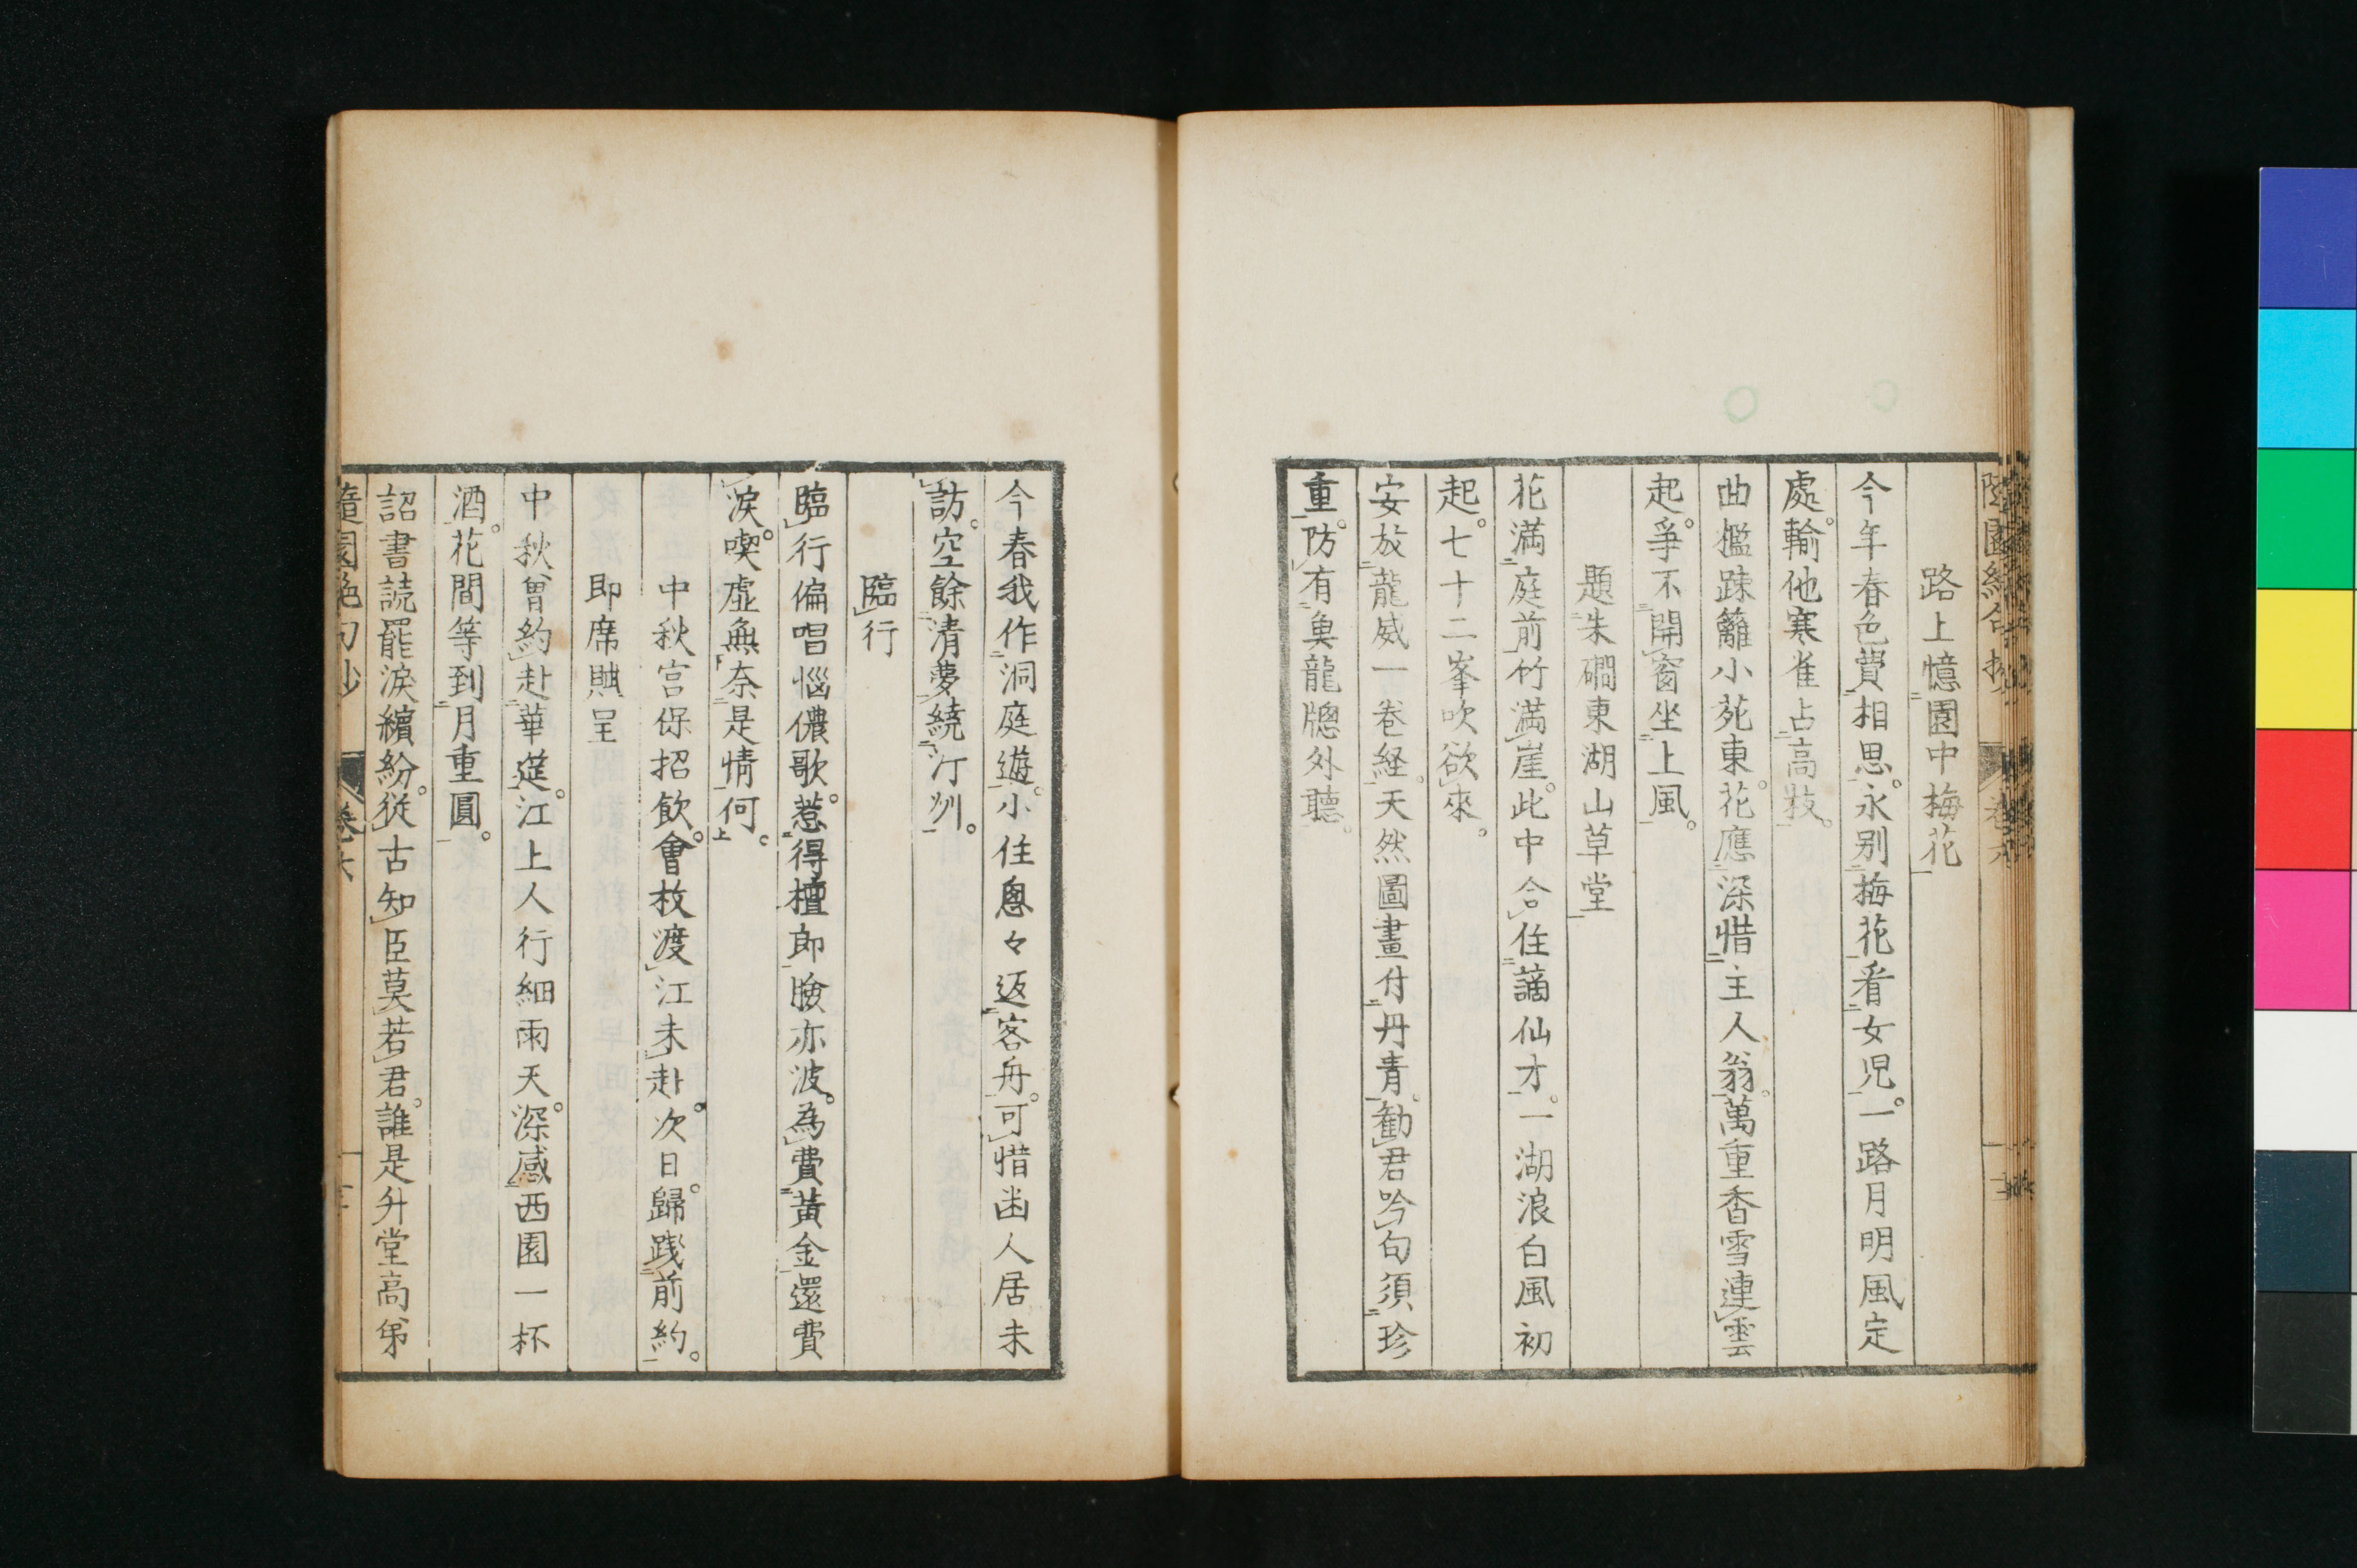 路上憶園中梅花
今年春色費相思。永别梅花看女児。一路月明風定
處。輸他寒雀占高枝。
曲檻踈籬小苑東。花應深惜主人翁。萬重香雪連雲
起。爭不開窗坐上風。
題朱磵東湖山草堂
花満庭前竹満崖。此中合住謫仙才。一湖浪白風初
起。七十二峯吹欲來。
安放龍威一巻経。天然圖畫付丹青。勧君吟句須珍
重。防有魚龍牕外聽。
今春我作洞庭遊。小住怱々返客舟。可惜幽人居未
訪。空餘清夢繞汀洲。
臨行
臨行偏唱惱儂歌。惹得檀郎臉亦波。為費黄金還費
淚。喫虛無奈是情何。
中秋宮保招飲。會枚渡江未赴。次日歸踐前約。
即席賦呈
中秋曽約赴華筵。江上人行細雨天。深感西園一杯
酒。花間等到月重圓。
詔書読罷淚繽紛。從古知臣莫若君。誰是升堂髙弟
隨園絶句抄 巻六